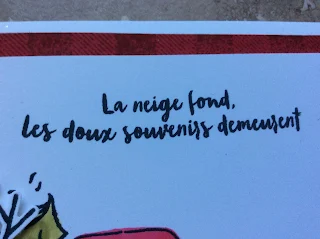 La neige fond,
les doux souvenirs demeurent